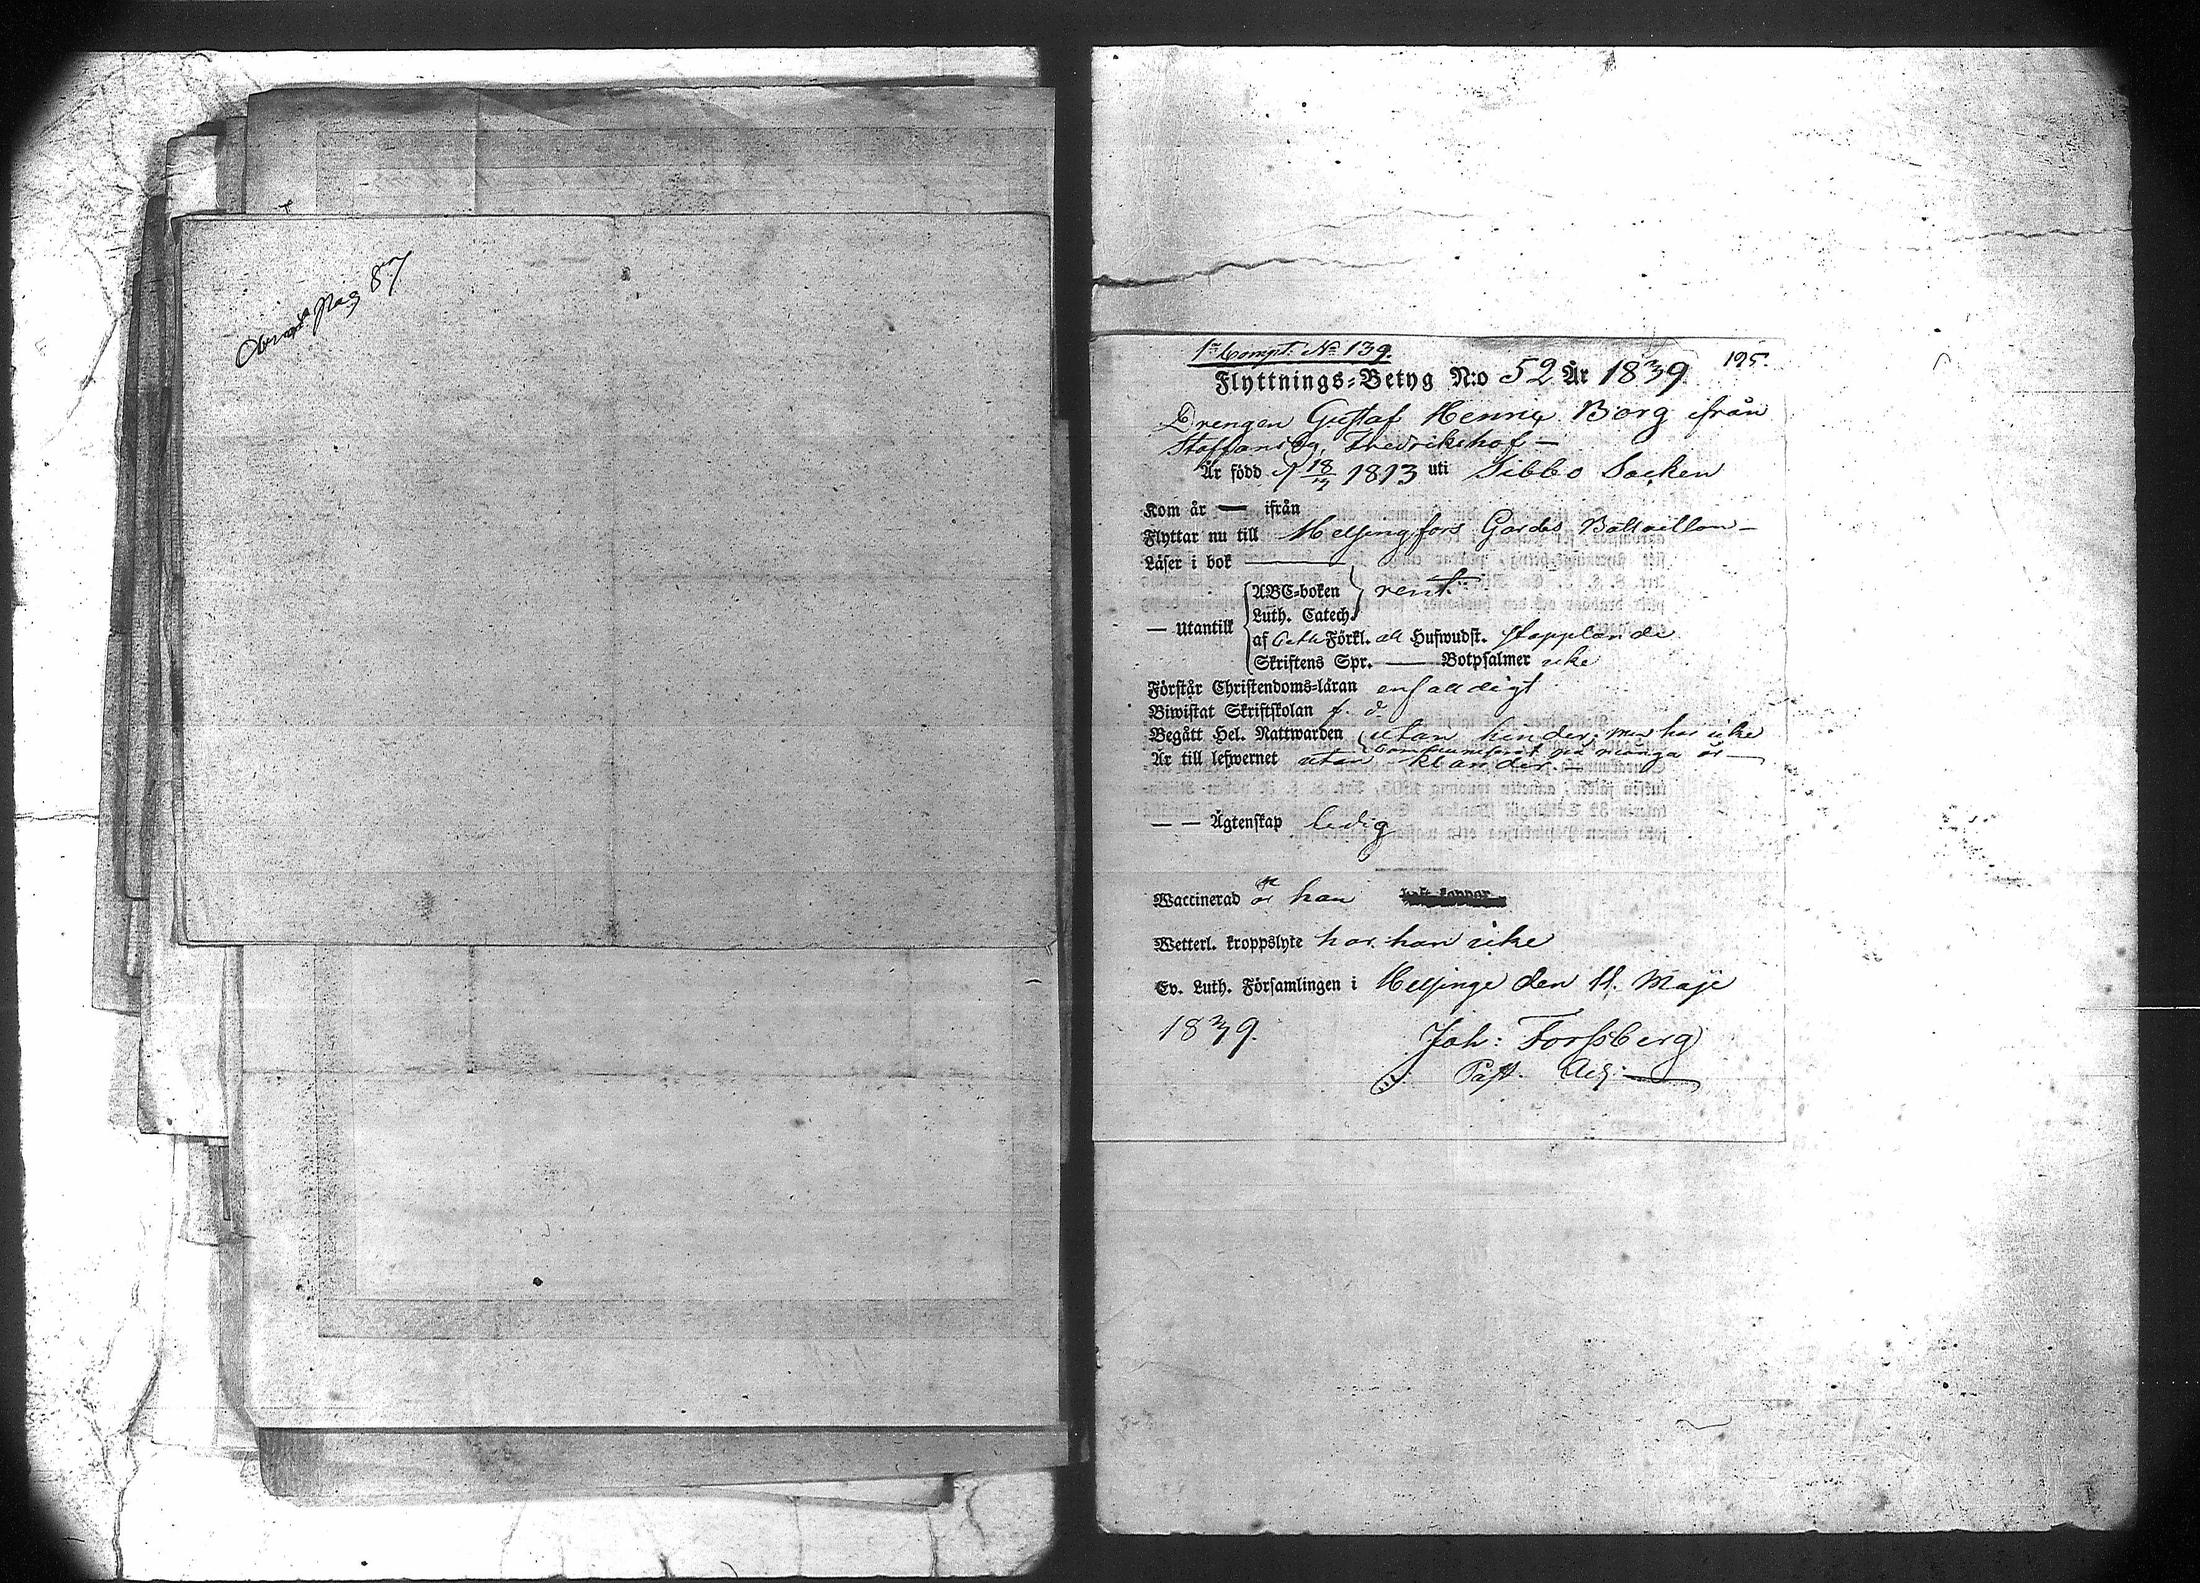 Pag 87
1:a Compt. No 139.
195.
Flyttnings-Betyg N:o 52 År 1839.
Drengen Gustaf Henric Borg ifrån
Staffansby, Fredrikshof —
Är född d. 18/7 1813 uti Sibbo Socken
Kom år — ifrån
Flyttar nu till Helsingfors Gardes Battaillon —
Läser i bok ———
— Utantill
ABC-boken } rent.
Luth. Catech.
af Förkl. all Hufwudst. stapplande
Skriftens Spr. —— Botpsalmer icke
Förstår Christendoms-läran enfalldigt
Biwistat Skriftskolan f. d.
Begått Hel. Nattwarden utan hinder, men har icke
communicerat på många år —
Är till lefwernet utan klander. —
— — Ägtenskap ledig
Waccinerad är han
Wetterl. kroppslyte har han icke
Ev. Luth. Församlingen i Helsinge den 11. Maji
1839.
Joh: Forssberg
Past. Adj.